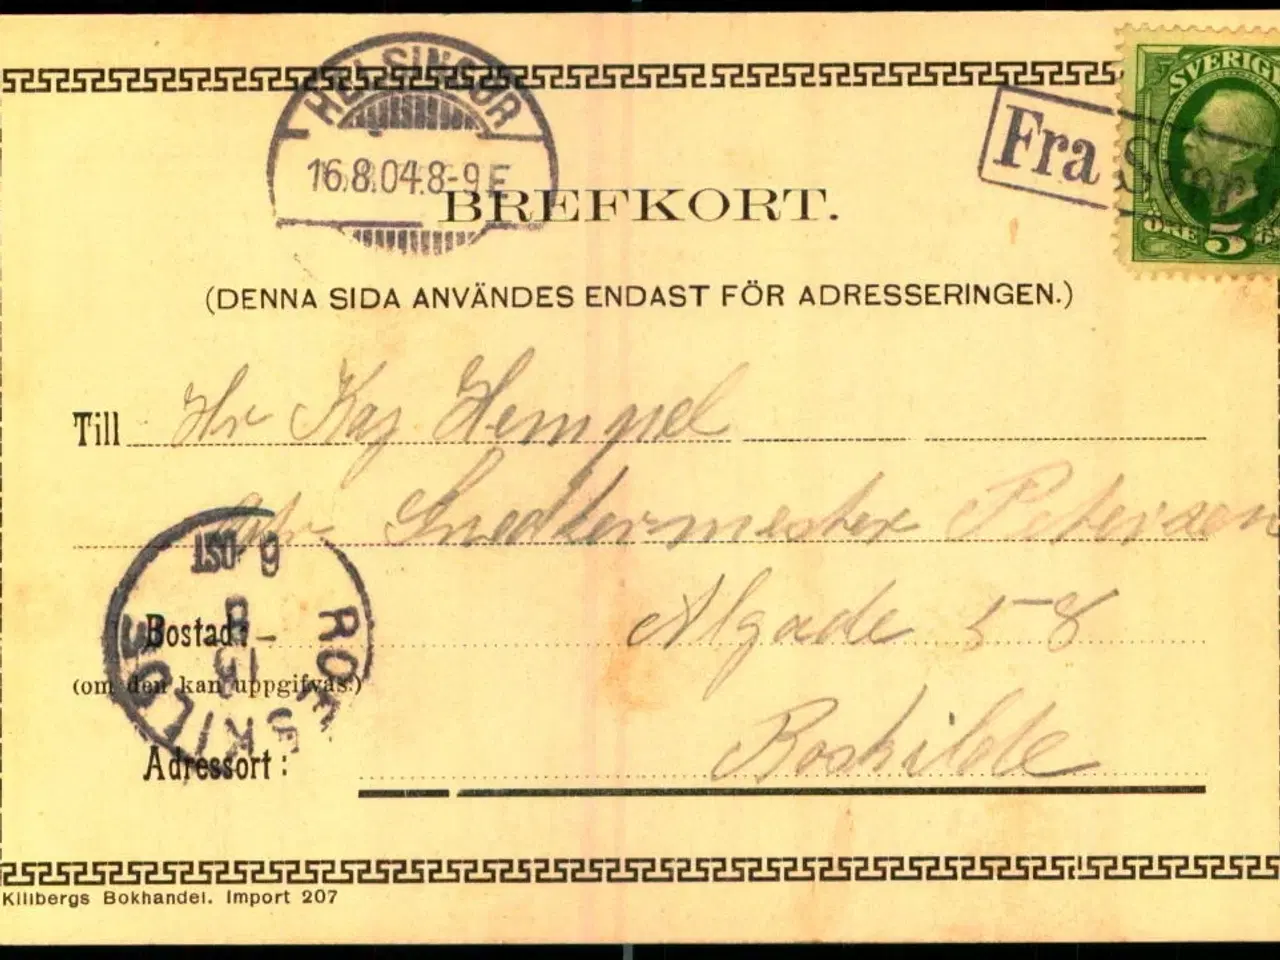 HELSINGØR
16.8.04.8-9 F
BREFKORT.
Fra
SVERIGE
ÖRE 5
(DENNA SIDA ANVÄNDES ENDAST FÖR ADRESSERINGEN.)
Till Hr Kaj Hempel
Adr Snedkermester Petersen
ROESKILDE
9 OST
Bostad: Algade 58
(om den kan uppgifvas.)
Adressort: Roskilde
Killbergs Bokhandel. Import 207